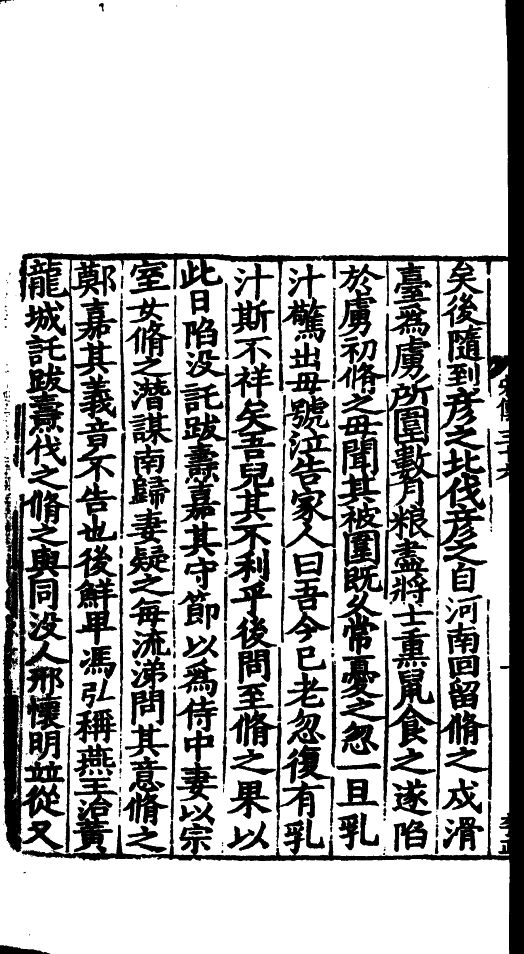 矣後隨到彦之北伐彦之自河南回留脩之戍滑
臺爲虜所圍數月粮盡將士熏鼠食之遂陷
於虜初脩之母聞其被圍既久常憂之忽一旦乳
汁驚出母號泣告家人曰吾今已老忽復有乳
汁斯不祥矣吾兒其不利乎後問至脩之果以
此日陷没託跋燾嘉其守節以爲侍中妻以宗
室女脩之潜謀南歸妻疑之每流涕問其意脩之
鄭嘉其義竟不告也後鮮卑馮弘稱燕王治黄
龍城託跋燾伐之脩之與同没人邢懷明並從又